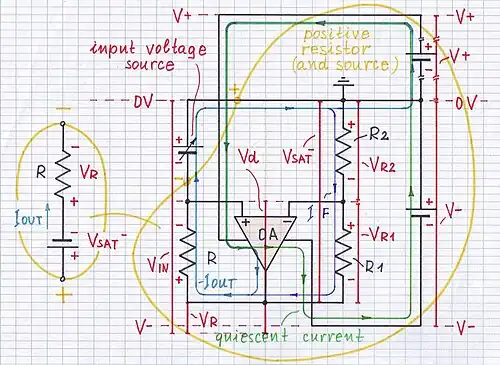 V+
V+
positive
resistor
(and source)
V+
input voltage
source
0V
0V
R2
VSAT-
VR2
Vd
R
VR
IOUT
VSAT-
I F
OA
V-
VIN
R
-IOUT
VR1
R1
VR
V-
V-
quiescent current